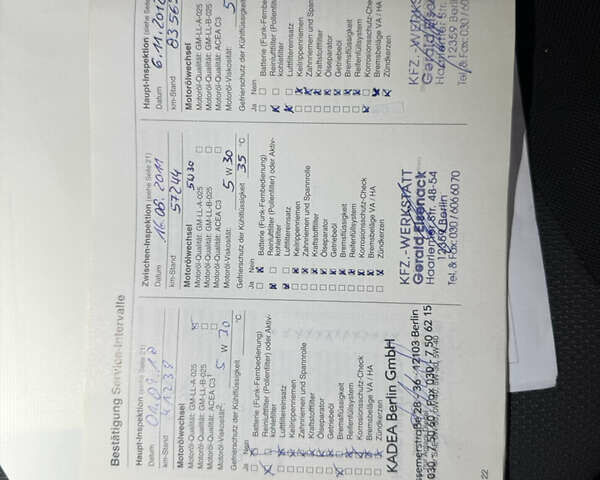 Bestätigung Service-Intervalle
Haupt-Inspektion (siehe Seite 21)
Datum
km-Stand 41238
Motorölwechsel
Motoröl-Qualität: GM-LL-A-025
Motoröl-Qualität: GM-LL-B-025
Motoröl-Qualität: ACEA C3
Motoröl-Viskosität: 5 W 30
Gefrierschutz der Kühlflüssigkeit °C
Ja Nein
Batterie (Funk-Fernbedienung)
Reinluftfilter (Pollenfilter) oder Aktiv-
kohlefilter
Luftfiltereinsatz
Keilrippenriemen
Zahnriemen und Spannrolle
Kraftstofffilter
Ölseparator
Getriebeöl
Bremsflüssigkeit
Reifenfüllsystem
Korrosionsschutz-Check
Bremsbeläge VA / HA
Zündkerzen
KADEA Berlin GmbH
28 - 36 · 12103 Berlin
Fax 030 - 7 50 62 15
22
Zwischen-Inspektion (siehe Seite 21)
Datum 16.08.2011
km-Stand 57244
Motorölwechsel 5W30
Motoröl-Qualität: GM-LL-A-025
Motoröl-Qualität: GM-LL-B-025
Motoröl-Qualität: ACEA C3
Motoröl-Viskosität: 5 W 30
Gefrierschutz der Kühlflüssigkeit 35 °C
Ja Nein
Batterie (Funk-Fernbedienung)
Reinluftfilter (Pollenfilter) oder Aktiv-
kohlefilter
Luftfiltereinsatz
Keilrippenriemen
Zahnriemen und Spannrolle
Kraftstofffilter
Ölseparator
Getriebeöl
Bremsflüssigkeit
Reifenfüllsystem
Korrosionsschutz-Check
Bremsbeläge VA / HA
Zündkerzen
KFZ.-WERKSTATT
Gerald Eisenack
Haarlemer Str. 48-54
12359 Berlin
Tel. & Fax: 030 / 606 60 70
Haupt-Inspektion (siehe Seite
Datum 6.11.2012
km-Stand
Motorölwechsel
Motoröl-Qualität: GM-LL-A-025
Motoröl-Qualität: GM-LL-B-025
Motoröl-Qualität: ACEA C3
Motoröl-Viskosität: 5
Gefrierschutz der Kühlflüssigkeit
Ja Nein
Batterie (Funk-Fernbedienung)
Reinluftfilter (Pollenfilter)
kohlefilter
Luftfiltereinsatz
Keilrippenriemen
Zahnriemen und
Kraftstofffilter
Ölseparator
Getriebeöl
Bremsflüssigkeit
Reifenfüllsystem
Korrosionsschutz-Check
Bremsbeläge VA / HA
Zündkerzen
KFZ.-WERKS
Gerald
Haarlemer Str.
12359 Berlin
Tel. & Fax: 030 / 60